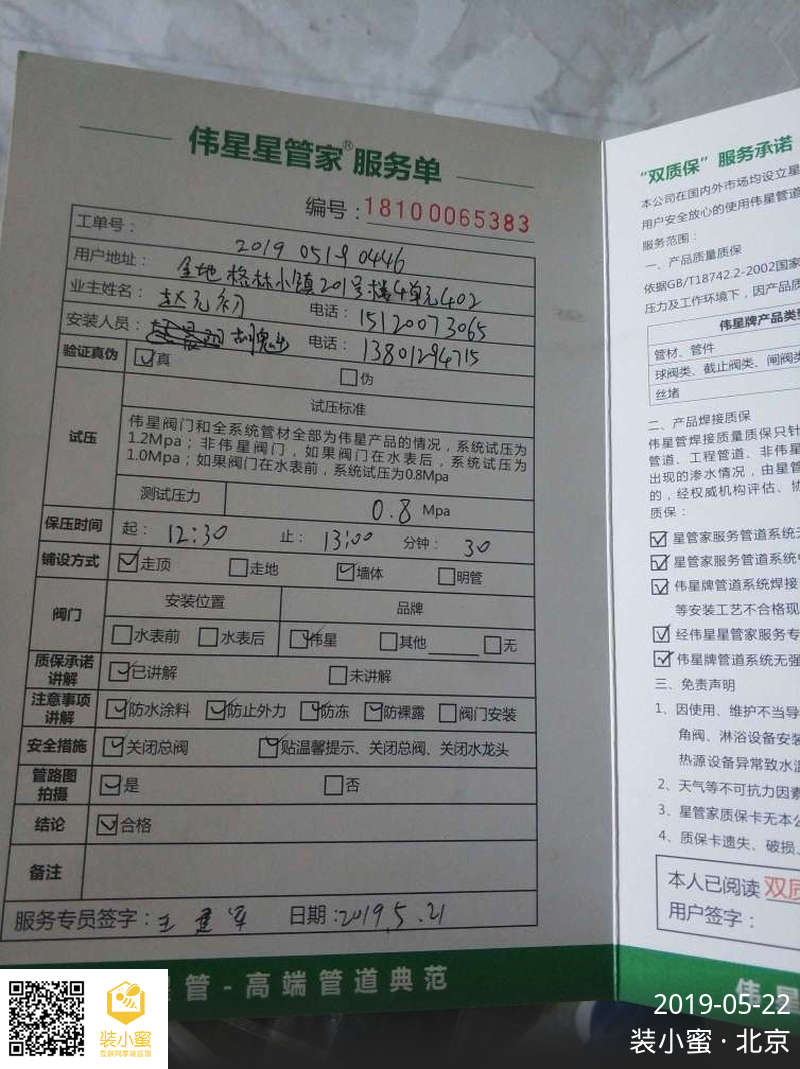 伟星星管家®服务单
编号：18100065383
工单号：2019 0519 0446
用户地址：金地格林小镇201号楼4单元402
业主姓名：赵元初 电话：15120073065
安装人员：胡 电话：13801294715
验证真伪 真 伪
试压 试压标准
伟星阀门和全系统管材全部为伟星产品的情况，系统试压为
1.2Mpa；非伟星阀门，如果阀门在水表后，系统试压为
1.0Mpa；如果阀门在水表前，系统试压为0.8Mpa
测试压力 0.8 Mpa
保压时间 起：12:30 止：13:00 分钟：30
铺设方式 走顶 走地 墙体 明管
阀门 安装位置 品牌
水表前 水表后 伟星 其他 无
质保承诺讲解 已讲解 未讲解
注意事项讲解 防水涂料 防止外力 防冻 防裸露 阀门安装
安全措施 关闭总阀 贴温馨提示、关闭总阀、关闭水龙头
管路图拍摄 是 否
结论 合格
备注
服务专员签字：王建军 日期：2019.5.21
管-高端管道典范
“双质保”服务承诺
本公司在国内外市场均设立星
用户安全放心的使用伟星管道
服务范围：
一、产品质量质保
依据GB/T18742.2-2002国家
压力及工作环境下，因产品质
伟星牌产品类
管材、管件
球阀类、截止阀类、闸阀类
丝堵
二、产品焊接质保
伟星管焊接质量质保只针
管道、工程管道、非伟星
出现的渗水情况，由星管
的，经权威机构评估、协
质保：
星管家服务管道系统
星管家服务管道系统
伟星牌管道系统焊接
等安装工艺不合格现
经伟星星管家服务专
伟星牌管道系统无强
三、免责声明
1、因使用、维护不当导
角阀、淋浴设备安装
热源设备异常致水温
2、天气等不可抗力因素
3、星管家质保卡无本公
4、质保卡遗失、破损、
本人已阅读 双质
用户签字：
伟星
装小蜜
互联网家装监理
2019-05-22
装小蜜·北京